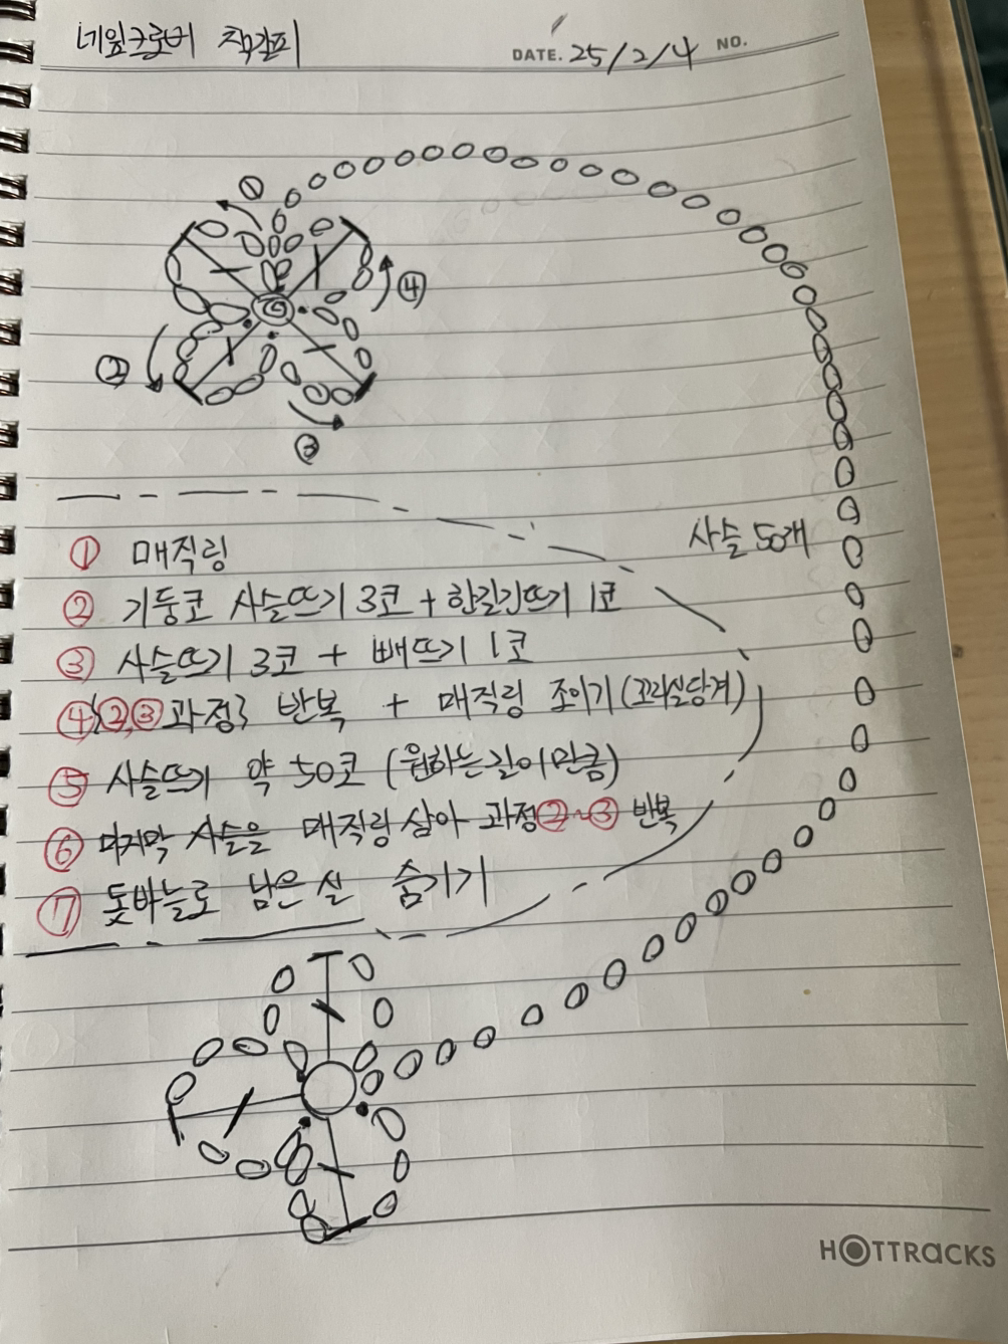 네잎크로버 책갈피
DATE. 25/2/4 NO.
①
④
②
③
사슬 50개
① 매직링
② 기둥코 사슬뜨기 3코 + 한길긴뜨기 1코
③ 사슬뜨기 3코 + 빼뜨기 1코
④ {②,③과정} 반복 + 매직링 조이기(꼬리실당겨)
⑤ 사슬뜨기 약 50코 (원하는길이만큼)
⑥ 마지막 사슬을 매직링삼아 과정②~③ 반복
⑦ 돗바늘로 남은 실 숨기기
HOTTRACKS